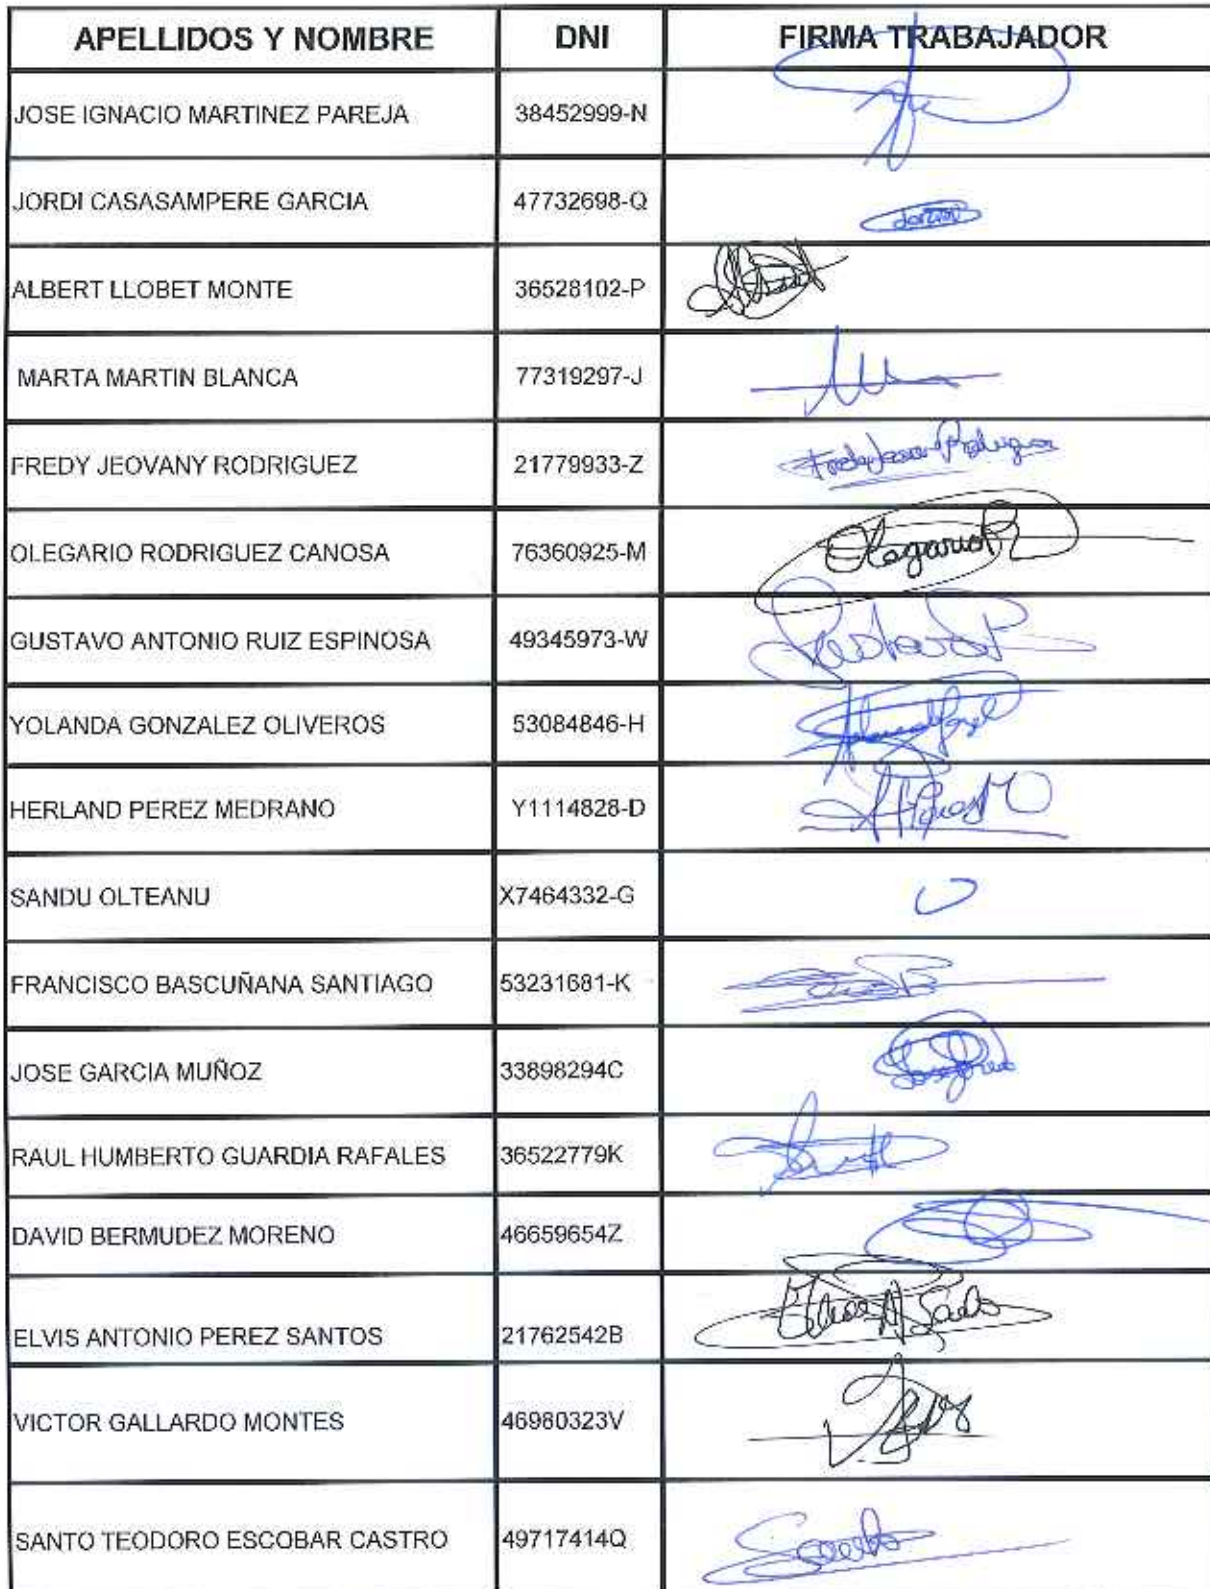 APELLIDOS Y NOMBRE DNI FIRMA TRABAJADOR
JOSE IGNACIO MARTINEZ PAREJA 38452999-N
JORDI CASASAMPERE GARCIA 47732698-Q
ALBERT LLOBET MONTE 36528102-P
MARTA MARTIN BLANCA 77319297-J
FREDY JEOVANY RODRIGUEZ 21779933-Z
OLEGARIO RODRIGUEZ CANOSA 76360925-M Olegario R
GUSTAVO ANTONIO RUIZ ESPINOSA 49345973-W
YOLANDA GONZALEZ OLIVEROS 53084846-H
HERLAND PEREZ MEDRANO Y1114828-D
SANDU OLTEANU X7464332-G
FRANCISCO BASCUÑANA SANTIAGO 53231681-K
JOSE GARCIA MUÑOZ 33898294C
RAUL HUMBERTO GUARDIA RAFALES 36522779K
DAVID BERMUDEZ MORENO 46659654Z
ELVIS ANTONIO PEREZ SANTOS 21762542B
VICTOR GALLARDO MONTES 46980323V
SANTO TEODORO ESCOBAR CASTRO 49717414Q